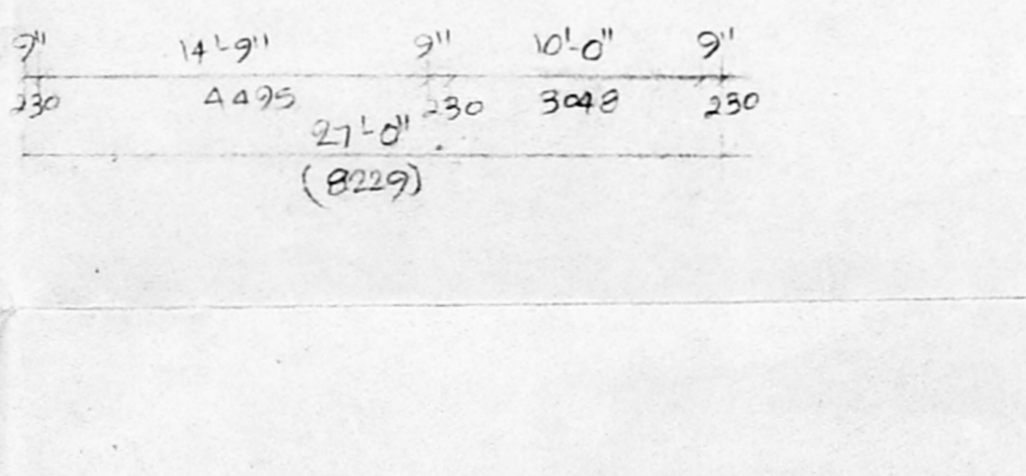 9" 14'-9" 9" 10'-0" 9"
230 4495 230 3048 230
27'-0"
(8229)